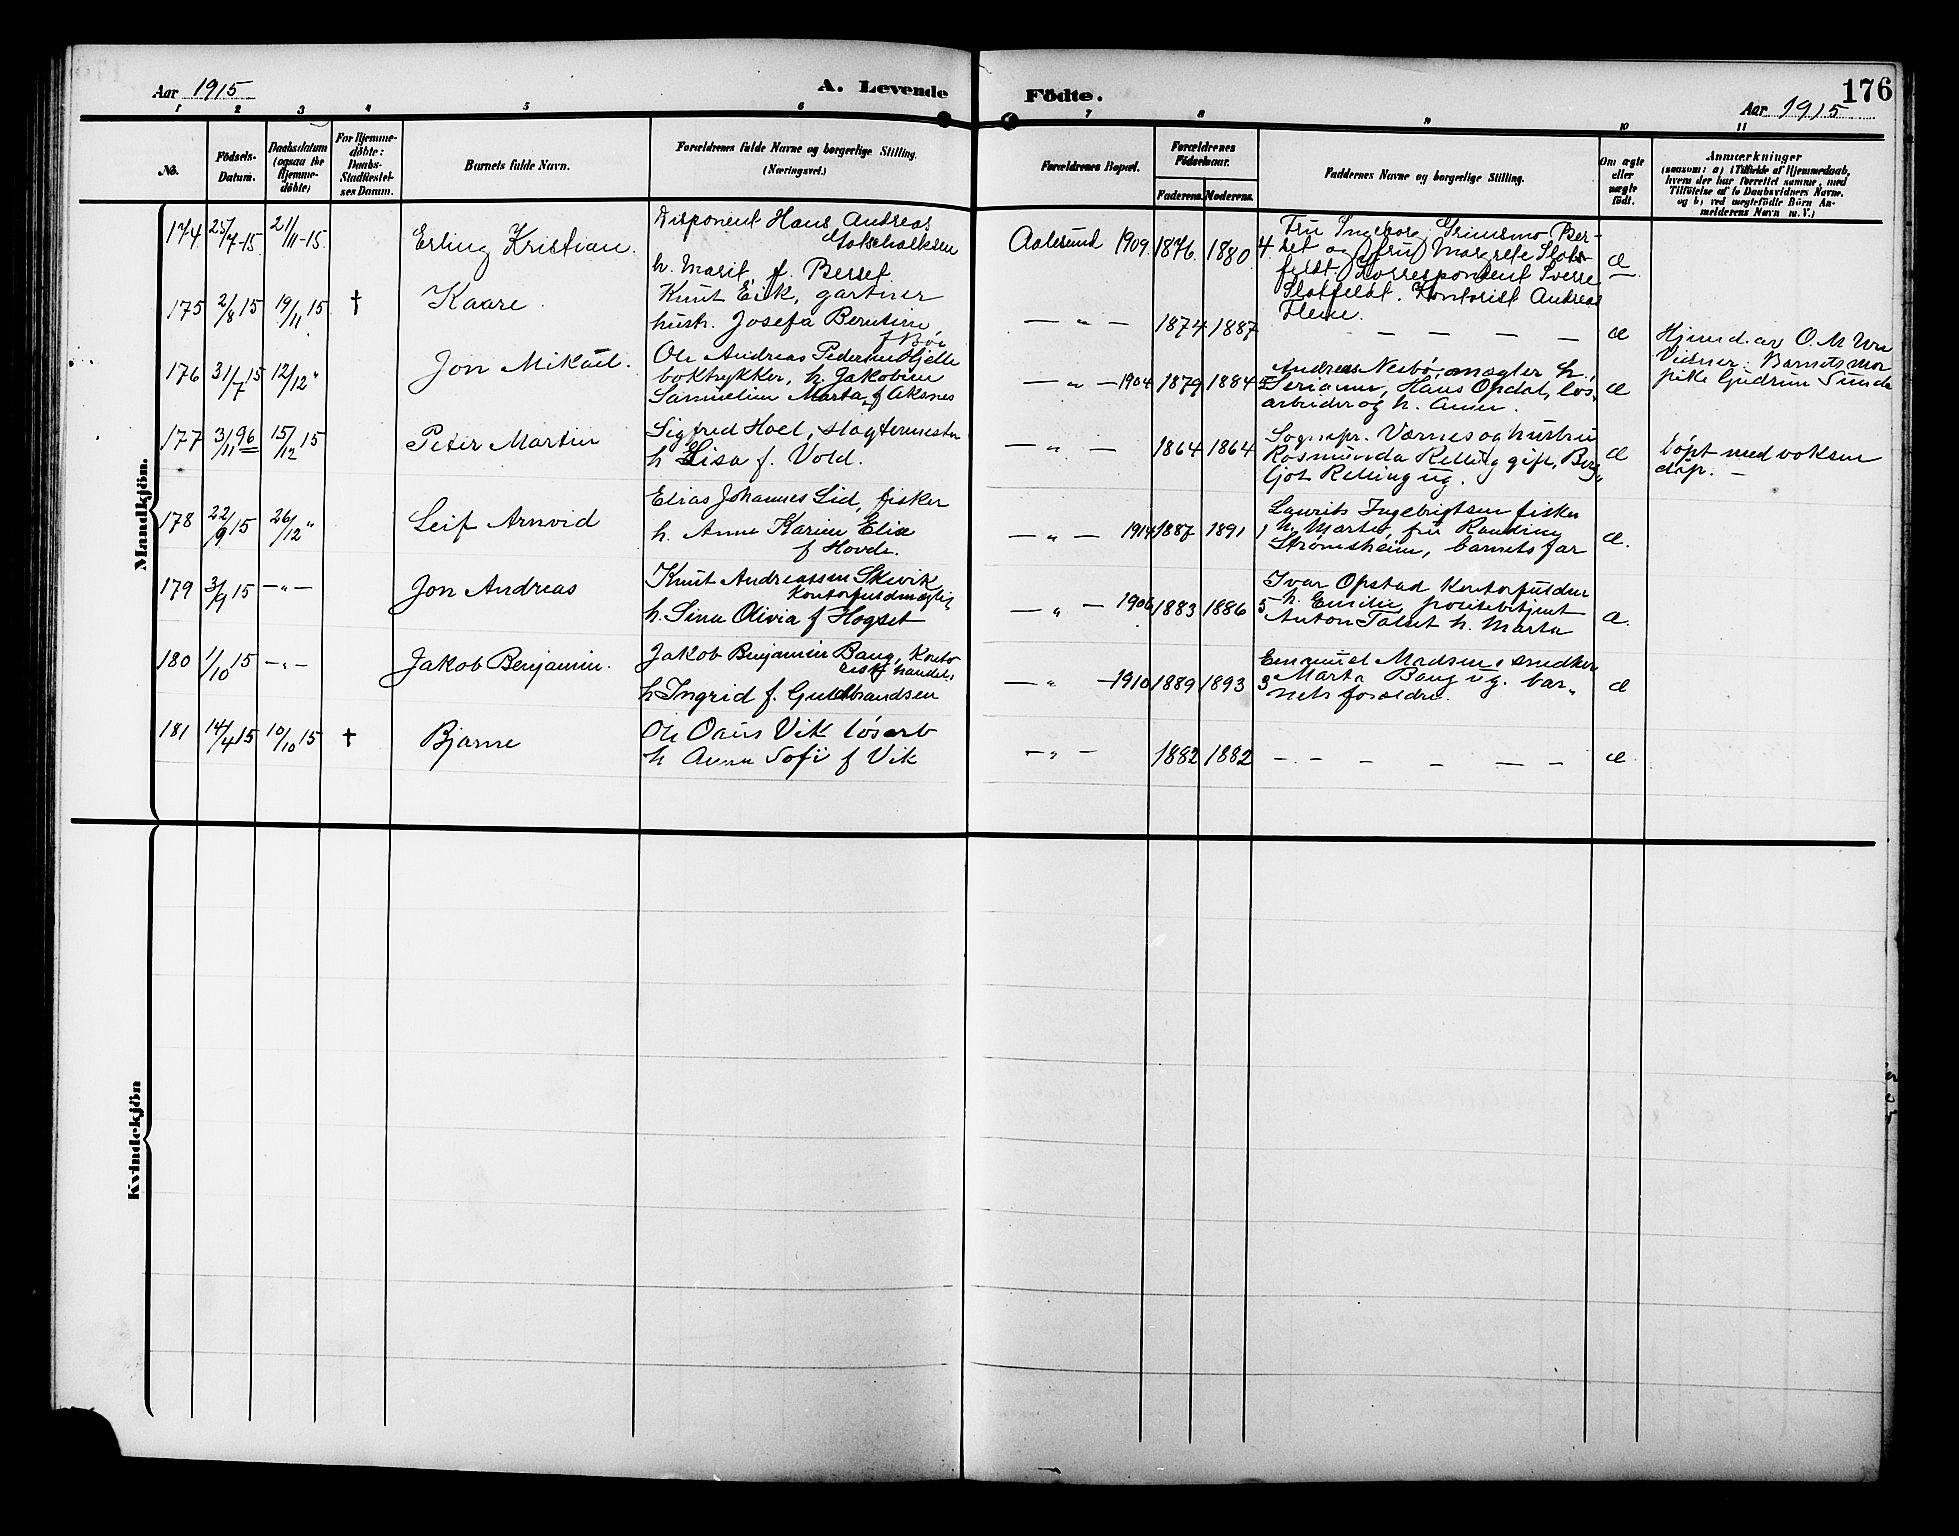 176
Aar 1915
A. Levende Födte.
Aar 1915
1 2 3 4 5 6 7 8 9 10 11
No.
Födsels-
Datum.
Daabsdatum
(ogsaa for
Hjemme-
döbte)
For Hjemme-
döbte:
Daabs-
Stadfæstel-
ses Datum.
Barnets fulde Navn.
Forældrenes fulde Navne og borgerlige Stilling.
(Næringsvei.)
Forældrenes Bopæl.
Forældrenes
Födselsaar.
Faderens. Moderens.
Faddernes Navne og borgerlige Stilling.
Om ægte
eller
uægte
födt.
Anmærkninger
(saasom: a) i Tilfælde af Hjemmedaab,
hvem der har forrettet samme, med
Tilföielse af to Daabsvidners Navne,
og b) ved uægtefödte Börn An-
melderens Navn m. V.)
Mandkjön.
174 25/7-15 21/11-15. Erling Kristian.
Disponent Hans Andreas
Gotschalksen
h. Marit f. Berset
Aalesund 1909 1876 1880 4
Fru Ingeborg Grimsmo Ber-
set og fru Margrete Slot-
feldt Korrespondent Sverre
Slotfeldt. Kontorist Andreas
Flem.
æ
175 2/8 15 19/11 15 † Kaare.
Knut Eik, gartner
hustr. Josefa Berntine
f Bøe
— " — 1874 1887
— — — —
æ
Hjemd. av O. M
Barnets mor
pike Gudrun Sunde
176 31/7 15 12/12 " Jon Mikael.
Ole Andreas Pedersen Hjelle
boktrykker, h. Jakobine
Samueline Marta f Aksnes
— " — 1904 1879 1884 5
Andreas Nesbø, mægler h.
Serianne, Hans Opdal, løs-
arbeider og h. Anne.
æ
177 3/11 96 15/12 15 Peter Martin
Sigfred Hoel, slagtermester
h Lisa f. Vold.
— " — 1864 1864
Sognepr. Værnes og hustru
Rosmunda Relling gift, Berg-
ljot Relling ug.
æ
løpt med voksen
dåp. —
178 22/9 15 26/12 " Leif Arnvid
Elias Johannes Lid, fisker
h. Anne Karine Elise
f Hovde.
— " — 1914 1887 1891 1
Laurits Ingebrigtsen fisker
h. Marte, fru Randine
Strømsheim, barnets far
æ.
179 3/9 15 — " — Jon Andreas
Knut Andreassen Skivik
kontorfuldmægtig
h. Sina Olivia f Hogset
— " — 1906 1883 1886 5
Ivar Opstad kontorfuldm
h. Emilie, politibetjent
Anton Talset h. Marta
æ.
180 1/10 15 — " — Jakob Benjamin.
Jakob Benjamin Baug, konto
rist handels
h Ingrid f. Guldbrandsen
— " — 1910 1889 1893 3
Emanuel Madsen, snedker
Marta Baug ug. bar-
nets forældre.
æ
181 14/4 15 10/10 15 † Bjarne
Ole Oaus Vik løsarb
h Anna Sofi f Vik
— " — 1882 1882
— — — — — —
æ
Kvindekjön